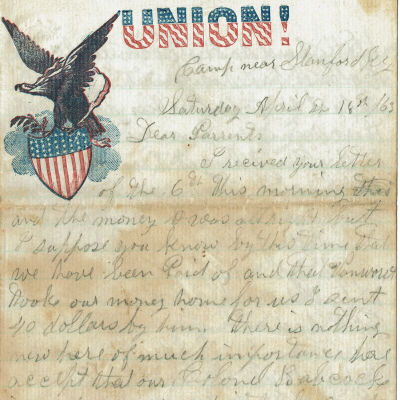 UNION!
Camp near Stanford Ky
Saturday April 18th 1863
Dear Parrents
I recived your letter
of the 6th this morning
and the money it was all right but
I suppose you know by this time that
we have been Paid of and that
Mooke our money home for us I sent
40 dollars by him. There is nothing
new here of much importance here
accept that our Colonel Babcock